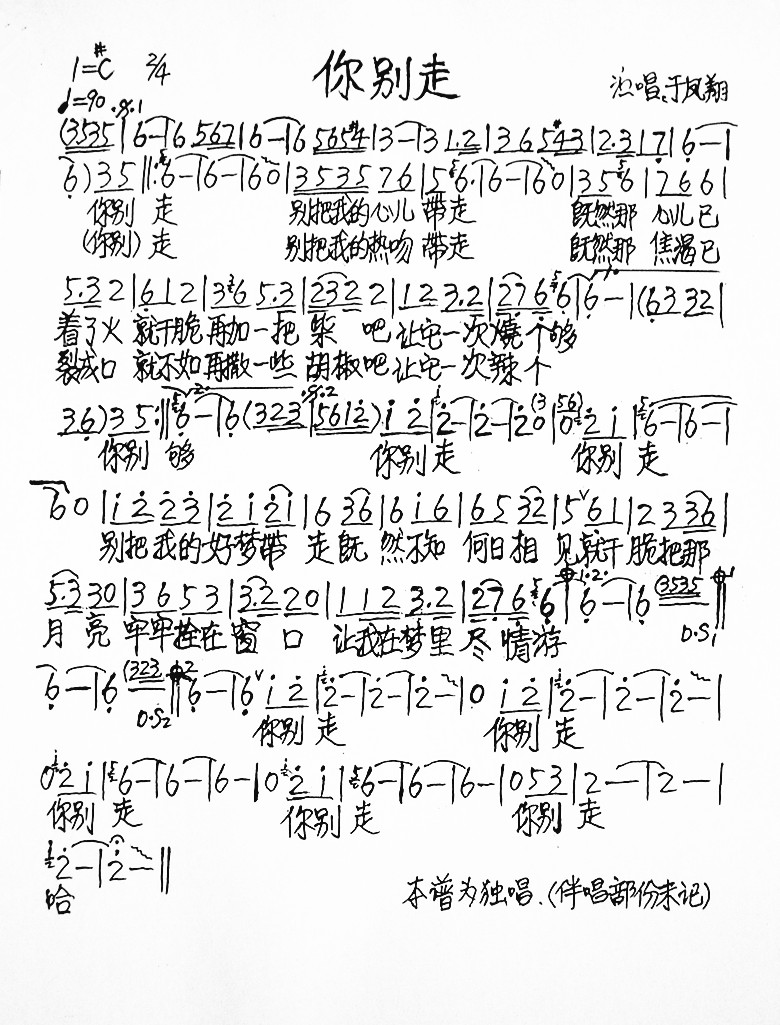 1=#C 2/4 你别走 演唱:于凤翔
♩=90 .𝄋.1
(3535|6—|6 567|6—|6 5654#|3—|3 1.2|3 6 5#43|2.3 17|6—|
6) 3 5‖:6—|6—|6 0|3535 76|5 6.|6—|6 0|3 5 6|7 6 6|
你别 走 别把我的心儿 带走 既然那 心儿已
(你别) 走 别把我的热吻 带走 既然那 焦渴已
5.3 2|6 1 2|3 6 5.3|2 3 2 2|1 2 3.2|2 7 6 6|6—|(6 3 3 2|
着了火 就干脆再加一把 柴 吧 让它一次烧个够
裂成口 就不如再撒一些 胡椒吧 让它一次辣个
3 6) 3 5:‖6—|6 (323|5612) i 2|2—|2—|2 0 (3|56) 0 2 i|6—|6—|
你别 够 你别走 你别 走
6 0|i 2 2 3|2 i 2 i|6 3 6|6 i 6|6 5 3 2|5 6 1|2 3 3 6|
别把我的好梦带 走既 然不知 何日相 见就干脆把那
5.3 3 0|3 6 5 3|3.2 2 0|1 1 2 3.2|2 7 6 6|6—|6 (3535‖
月 亮 牢牢拴在窗 口 让我在梦里尽情游
D.S1
6—|6 (323‖6—|6 i 2|2—|2—|2—|0 i 2|2—|2—|2—|
D.S2 你别 走 你别 走
0 2 i|6—|6—|6—|0 2 i|6—|6—|6—|0 5 3|2—|2—|
你别 走 你别 走 你别 走
2—|2—‖
哈 本谱为独唱.(伴唱部份未记)